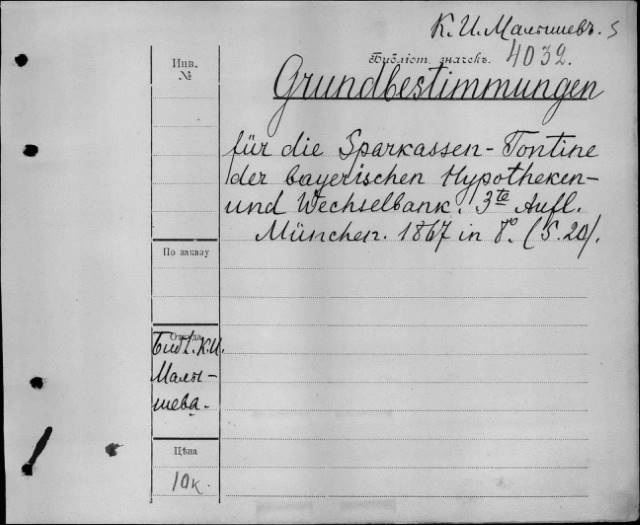 К. И. Малышевъ. 5
Библіот. значекъ. 4032.
Инв.
№
Grundbestimmungen
für die Sparkassen-Tontine
der bayerischen Hypotheken-
und Wechselbank. 3te Aufl.
München. 1867 in 8°. (S. 20).
По заказу
Откуда
Библ. К.И.
Малы-
шева.
Цѣна
10 к.